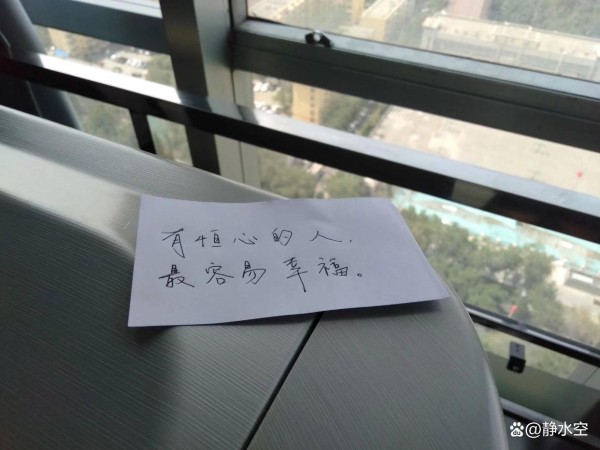 有恒心的人，
最容易幸福。
@静水空